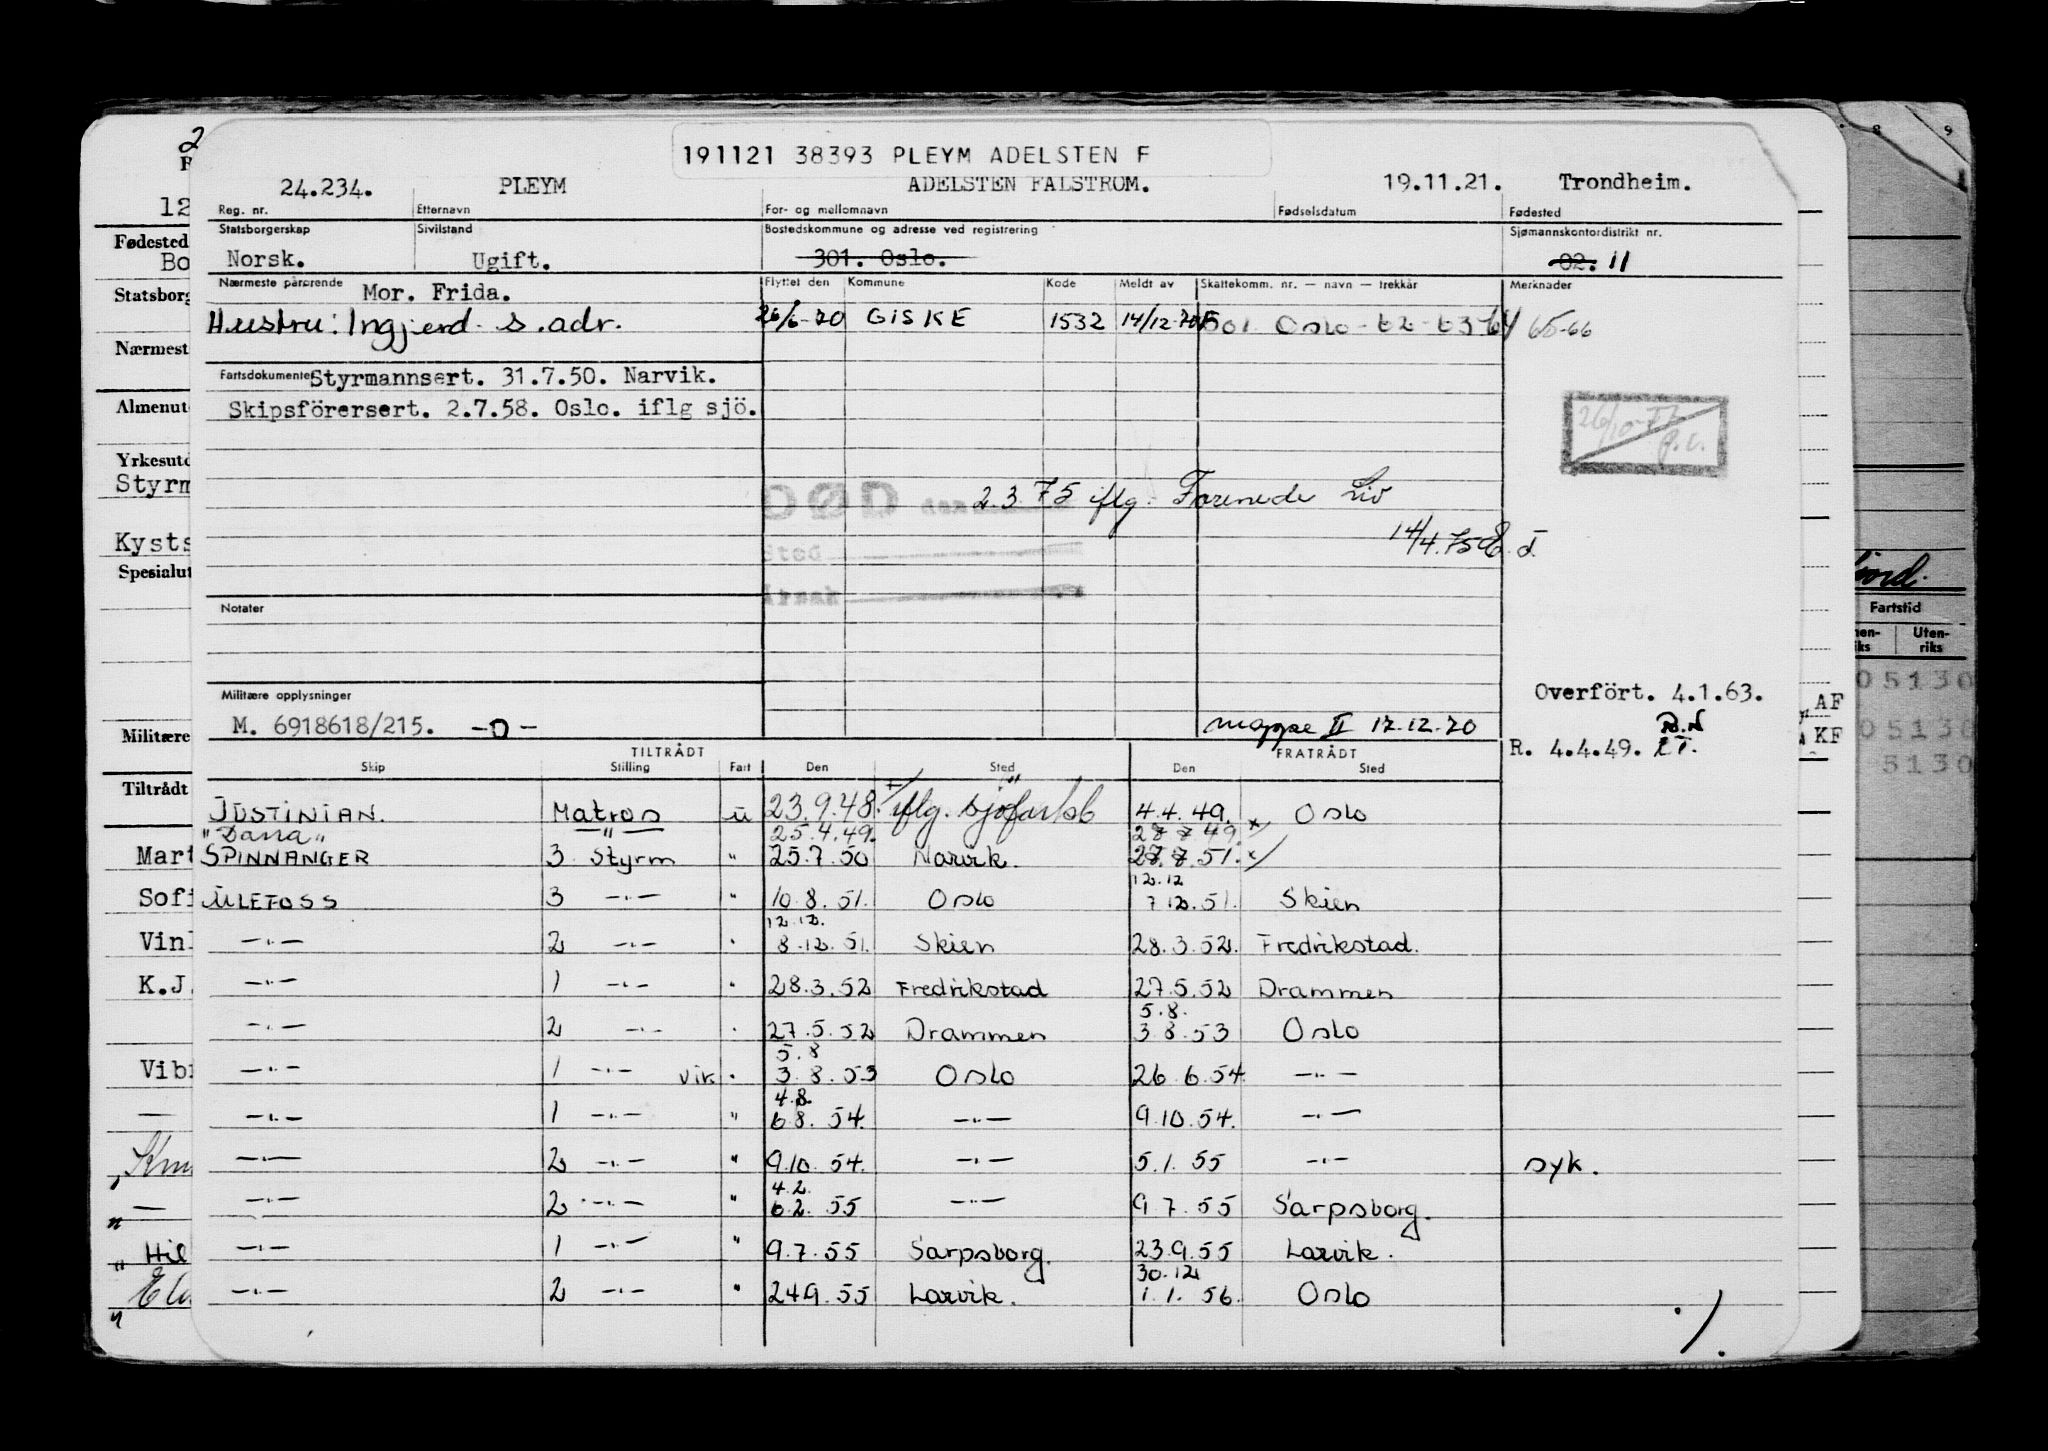 191121 38393 PLEYM ADELSTEN F
24.234. PLEYM ADELSTEN FALSTRÖM. 19.11.21. Trondheim.
Reg. nr. Etternavn For- og mellomnavn Fødselsdatum Fødested
Statsborgerskap Sivilstand Bostedskommune og adresse ved registrering Sjømannskontordistrikt nr.
Norsk. Ugift. 301. Oslo. 02. 11
Nærmeste pårørende Mor. Frida. Flyttet den Kommune Kode Meldt av Skattekomm. nr. — navn — trekkår Merknader
Hustru: Ingjerd s. adr. 26/6-70 GISKE 1532 14/12-70 Oslo - 62 - 63-64 65-66
Fartsdokumenter Styrmannsert. 31.7.50. Narvik.
Skipsförersert. 2.7.58. Oslo. iflg sjö.
26/10-71
DØD den 2.3.75 iflg. Forenede Liv
14/4.75
Sted
Årsak
Notater
Militære opplysninger Overfört. 4.1.63.
M. 6918618/215. -0- mappe II 17.12.70
R. 4.4.49.
TILTRÅDT FRATRÅDT
Skip Stilling Fart Den Sted Den Sted
JUSTINIAN. Matros u 23.9.48. iflg. sjøfartsb 4.4.49. Oslo
"Dana" " 25.4.49. 28 7 49 x/
SPINNANGER 3 Styrm " 25.7.50 Narvik. 27.7.51. x/
12.12
ULEFOSS 3 -"- " 10.8.51. Oslo 7 12.51. Skien
12.12.
-"- 2 -"- " 8.12.51. Skien 28.3.52. Fredrikstad.
-"- 1 -"- " 28.3.52 Fredrikstad 27.5.52 Drammen
5.8.
-"- 2 -"- " 27.5.52 Drammen 3 8.53 Oslo
5.8
-"- 1 -"- vik " 3.8.53 Oslo 26.6.54 -"-
4.8.
-"- 1 -"- " 6 8. 54. -"- 9.10.54. -"-
-"- 2 -"- " 9.10.54. -"- 5.1.55 -"- syk.
4.2.
-"- 2 -"- " 6.2.55 -"- 9 7.55 Sarpsborg.
-"- 1 -"- " 9.7.55 Sarpsborg. 23.9.55 Larvik.
30.12
-"- 2 -"- " 24 9.55 Larvik. 1.1.56. Oslo
./.
12
Fødested
Bo
Statsborg
Nærmest
Almenut
Yrkesutd
Styrm
Kysts
Spesialut
Militære
Tiltrådt
Mart
Sofi
Vin
K.J.
Vib
Hil
8 9
Fartstid
Uten-
riks
05130
AF
05130
KF
5130